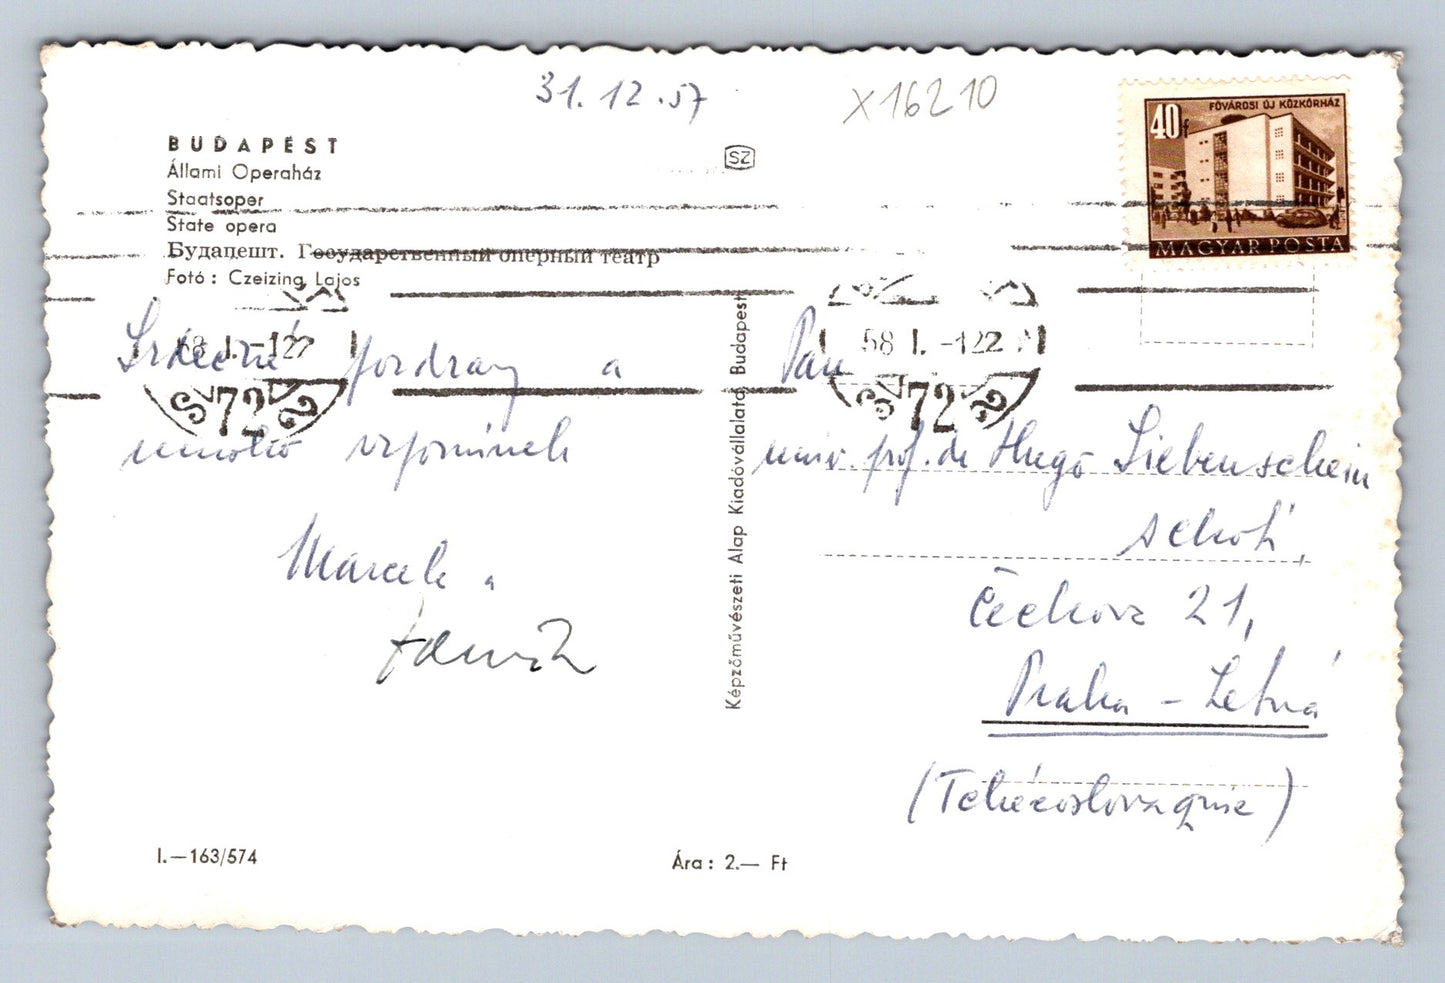 31.12.57
X16210
BUDAPEST
Állami Operaház
Staatsoper
State opera
Будапешт. Государственный оперный театр
Fotó: Czeizing Lajos
SZ
40f
FŐVÁROSI ÚJ KÖZKÓRHÁZ
MAGYAR POSTA
58 I. -122
72
58 I. -122
72
Srdečné pozdravy a
mnoho vzpomínek
Marcela
Képzőművészeti Alap Kiadóvállalata, Budapest
Pan
univ. prof. dr Hugo Siebenschein
s chotí,
Čechova 21,
Praha - Letná
(Tchécoslovaquie)
I.—163/574
Ára: 2.— Ft